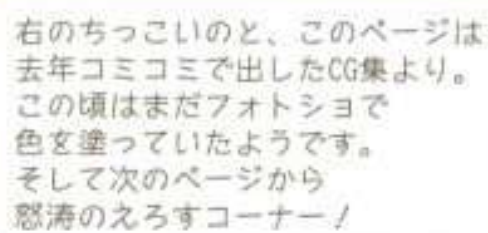 右のちっこいのと、このページは
去年コミコミで出したCG集より。
この頃はまだフォトショで
色を塗っていたようです。
そして次のページから
怒涛のえろすコーナー！